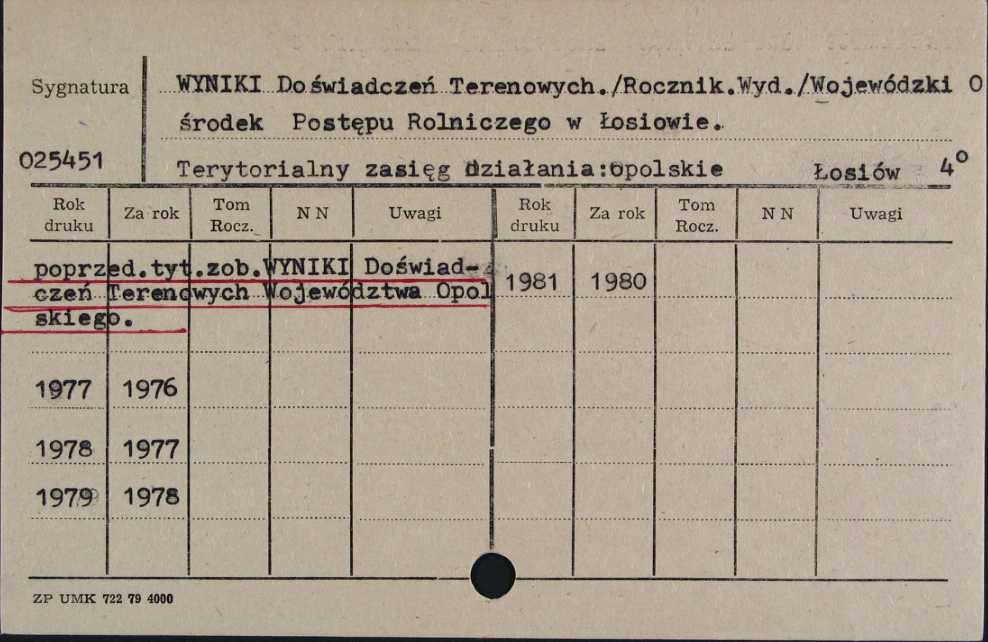 Sygnatura WYNIKI Doświadczeń Terenowych./Rocznik.Wyd./Wojewódzki O
środek Postępu Rolniczego w Łosiowie.
025451 Terytorialny zasięg działania:opolskie Łosiów 4°
Rok druku Za rok Tom Rocz. N N Uwagi Rok druku Za rok Tom Rocz. N N Uwagi
poprzed.tyt.zob.WYNIKI Doświad-
czeń Terenowych Województwa Opol
skiego.
1981 1980
1977 1976
1978 1977
1979 1978
ZP UMK 722 79 4000